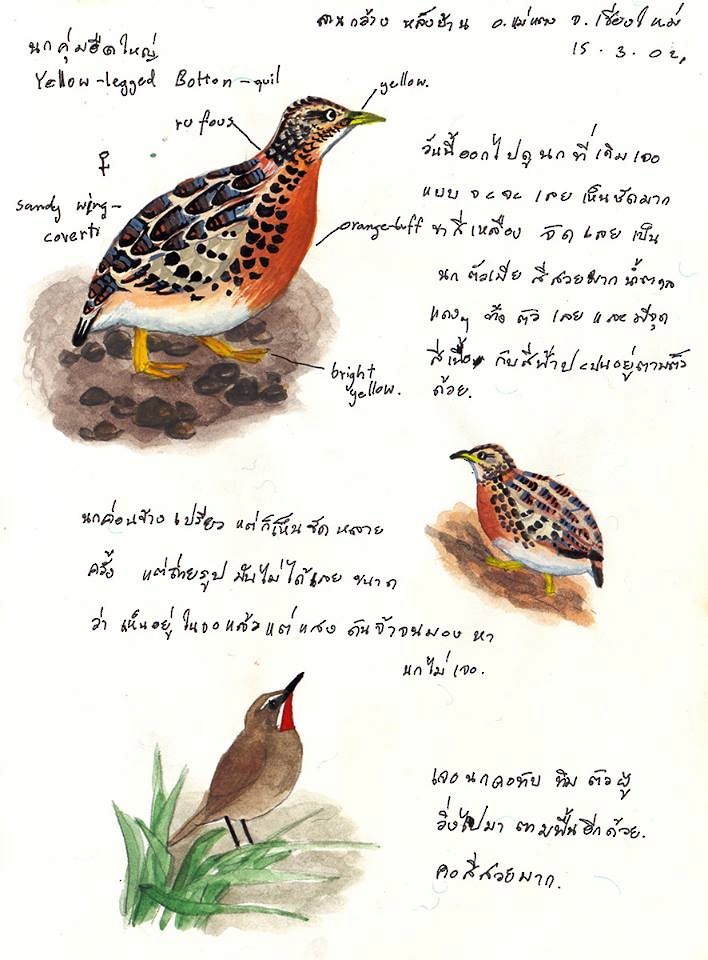 ลานกว้าง หลังบ้าน อ.แม่แตง จ.เชียงใหม่
15.3.02,
นกคุ่มอืดใหญ่
Yellow-legged Botton-quil
yellow.
rufous
♀
sandy wing-
coverts
orange-buff
bright
yellow.
วันนี้ออกไปดูนกที่เดิมเจอ
แบบ จะจะ เลย เห็นชัดมาก
ขาสีเหลือง จัดเลย เป็น
นกตัวเมีย สีสวยมากน้ำตาล
แดงๆ ทั้งตัว เลย และมีจุด
สีเนื้อ กับสีฟ้าปะปนอยู่ตามตัว
ด้วย.
นกค่อนข้าง เปรียว แต่ก็เห็นชัด หลาย
ครั้ง แต่ถ่ายรูป มันไม่ได้เลย ขนาด
ว่า เห็นอยู่ ในจอแล้วแต่แสง ดันจ้าจนมอง หา
นกไม่เจอ.
เจอนกคอทับ ทิม ตัวผู้
วิ่งไปมา ตามพื้นอีกด้วย.
คอสีสวยมาก.